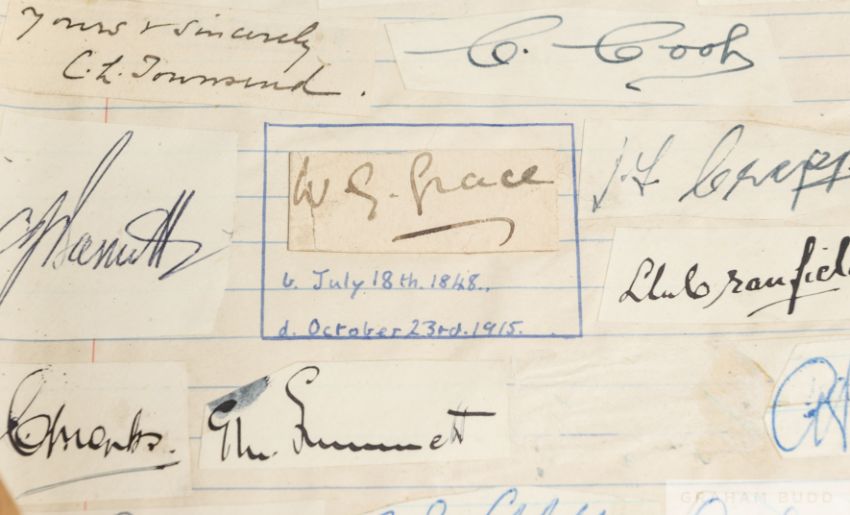 Yours v sincerely
C.L. Townsend.
C. Cook
W G. Grace
b. July 18th. 1848.
d. October 23rd. 1915.
C J Barnett
J.F. Crapp
L.M. Cranfiel
C Monks.
Geo. Emmett
GRAHAM BUDD